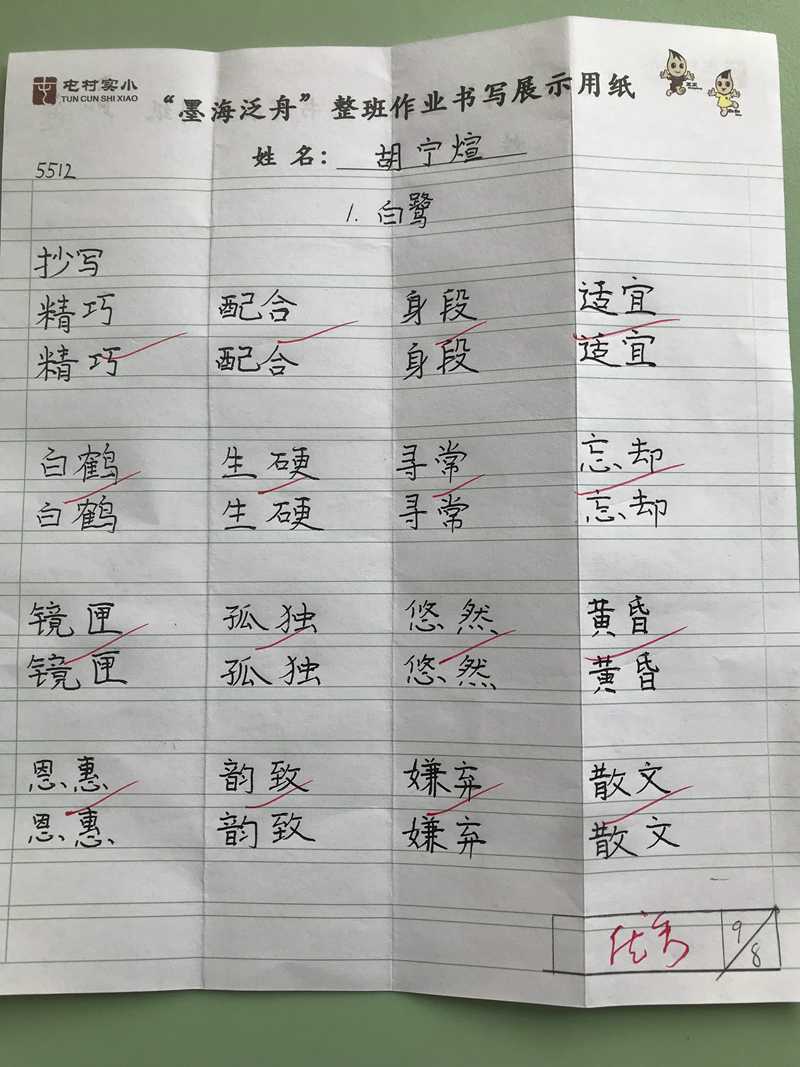 屯村实小
TUN CUN SHI XIAO
“墨海泛舟”整班作业书写展示用纸
5512 姓名：胡宁煊
1. 白鹭
抄写
精巧 配合 身段 适宜
精巧 配合 身段 适宜
白鹤 生硬 寻常 忘却
白鹤 生硬 寻常 忘却
镜匣 孤独 悠然 黄昏
镜匣 孤独 悠然 黄昏
恩惠 韵致 嫌弃 散文
恩惠 韵致 嫌弃 散文
优秀 9/8